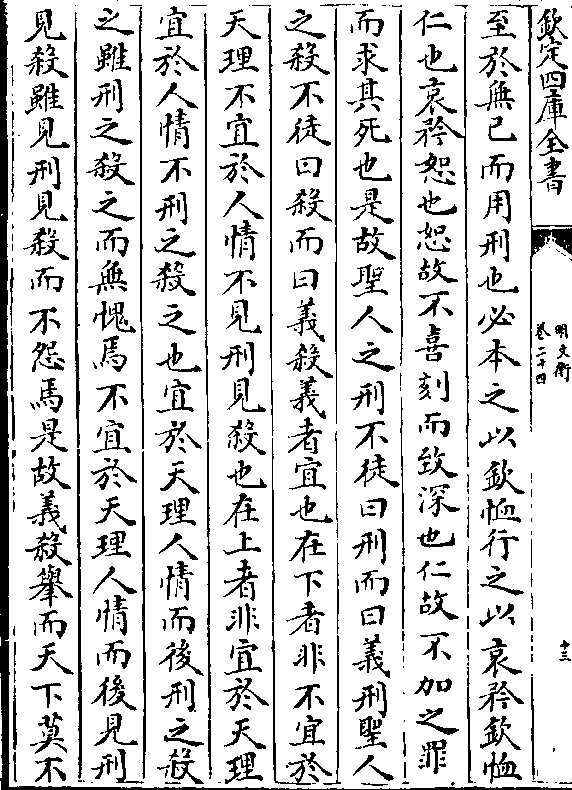 欽定四庫全書
明文衡
卷二十四
十三
至於無已而用刑也必本之以欽恤行之以哀矜欽恤
仁也哀矜恕也恕故不喜刻而致深也仁故不加之罪
而求其死也是故聖人之刑不徒曰刑而曰義刑聖人
之殺不徒曰殺而曰義殺義者宜也在下者非不宜於
天理不宜於人情不見刑見殺也在上者非宜於天理
宜於人情不刑之殺之也宜於天理人情而後刑之殺
之雖刑之殺之而無愧焉不宜於天理人情而後見刑
見殺雖見刑見殺而不怨焉是故義殺舉而天下莫不